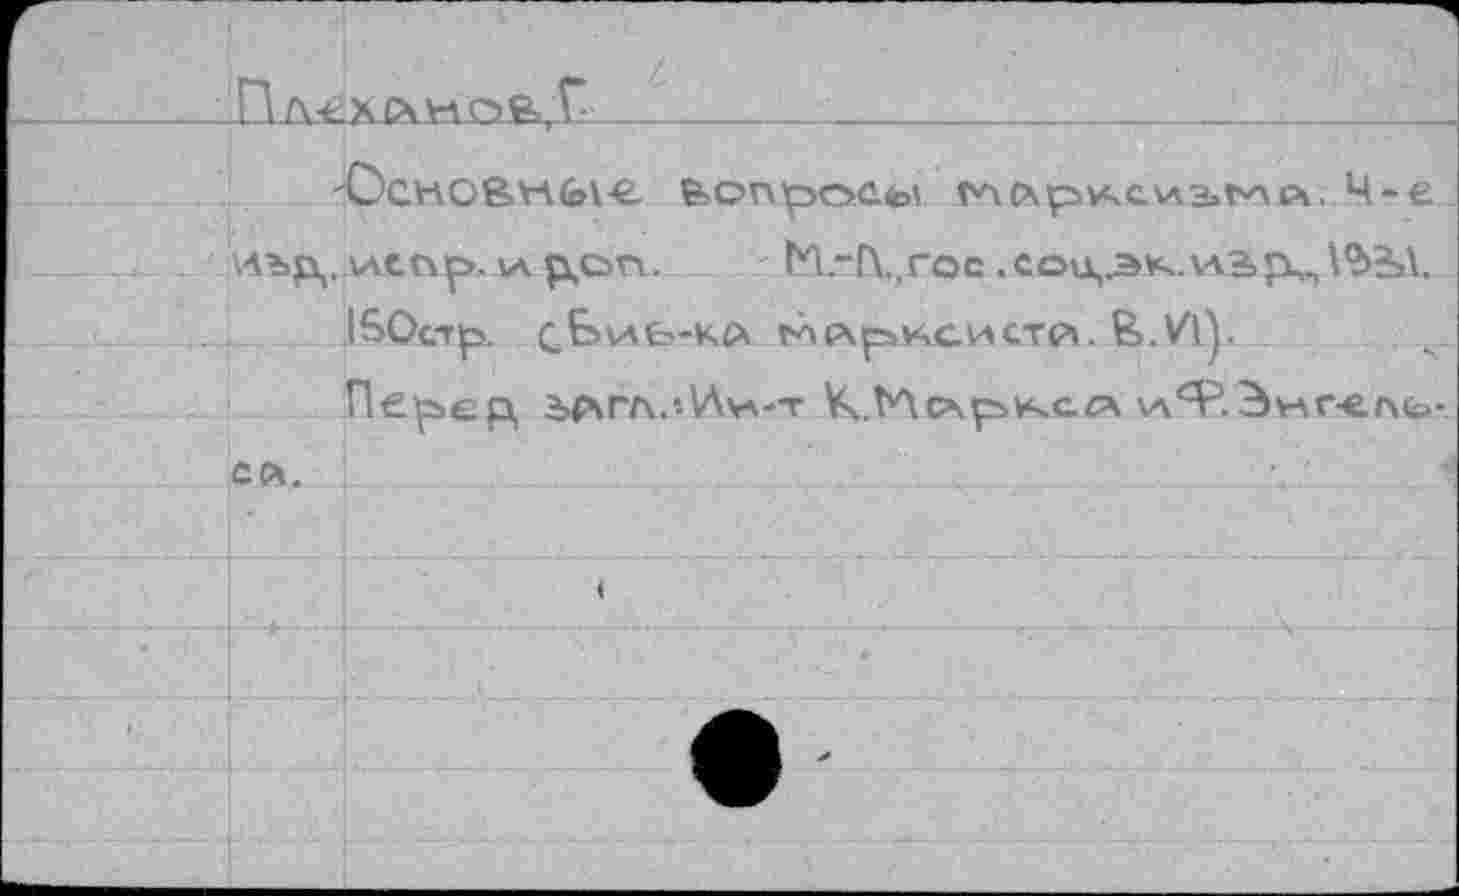 Плеханов, Г.
Основные вопросы марксизма. 4-е
изд. испр. и доп. М.-Л., гос. соц. эк. изд., 1931.
150стр. (Биб-ка марксиста. В.VI).
Перед загл.: Ин-т К. Маркса и Ф. Энгель-
са.